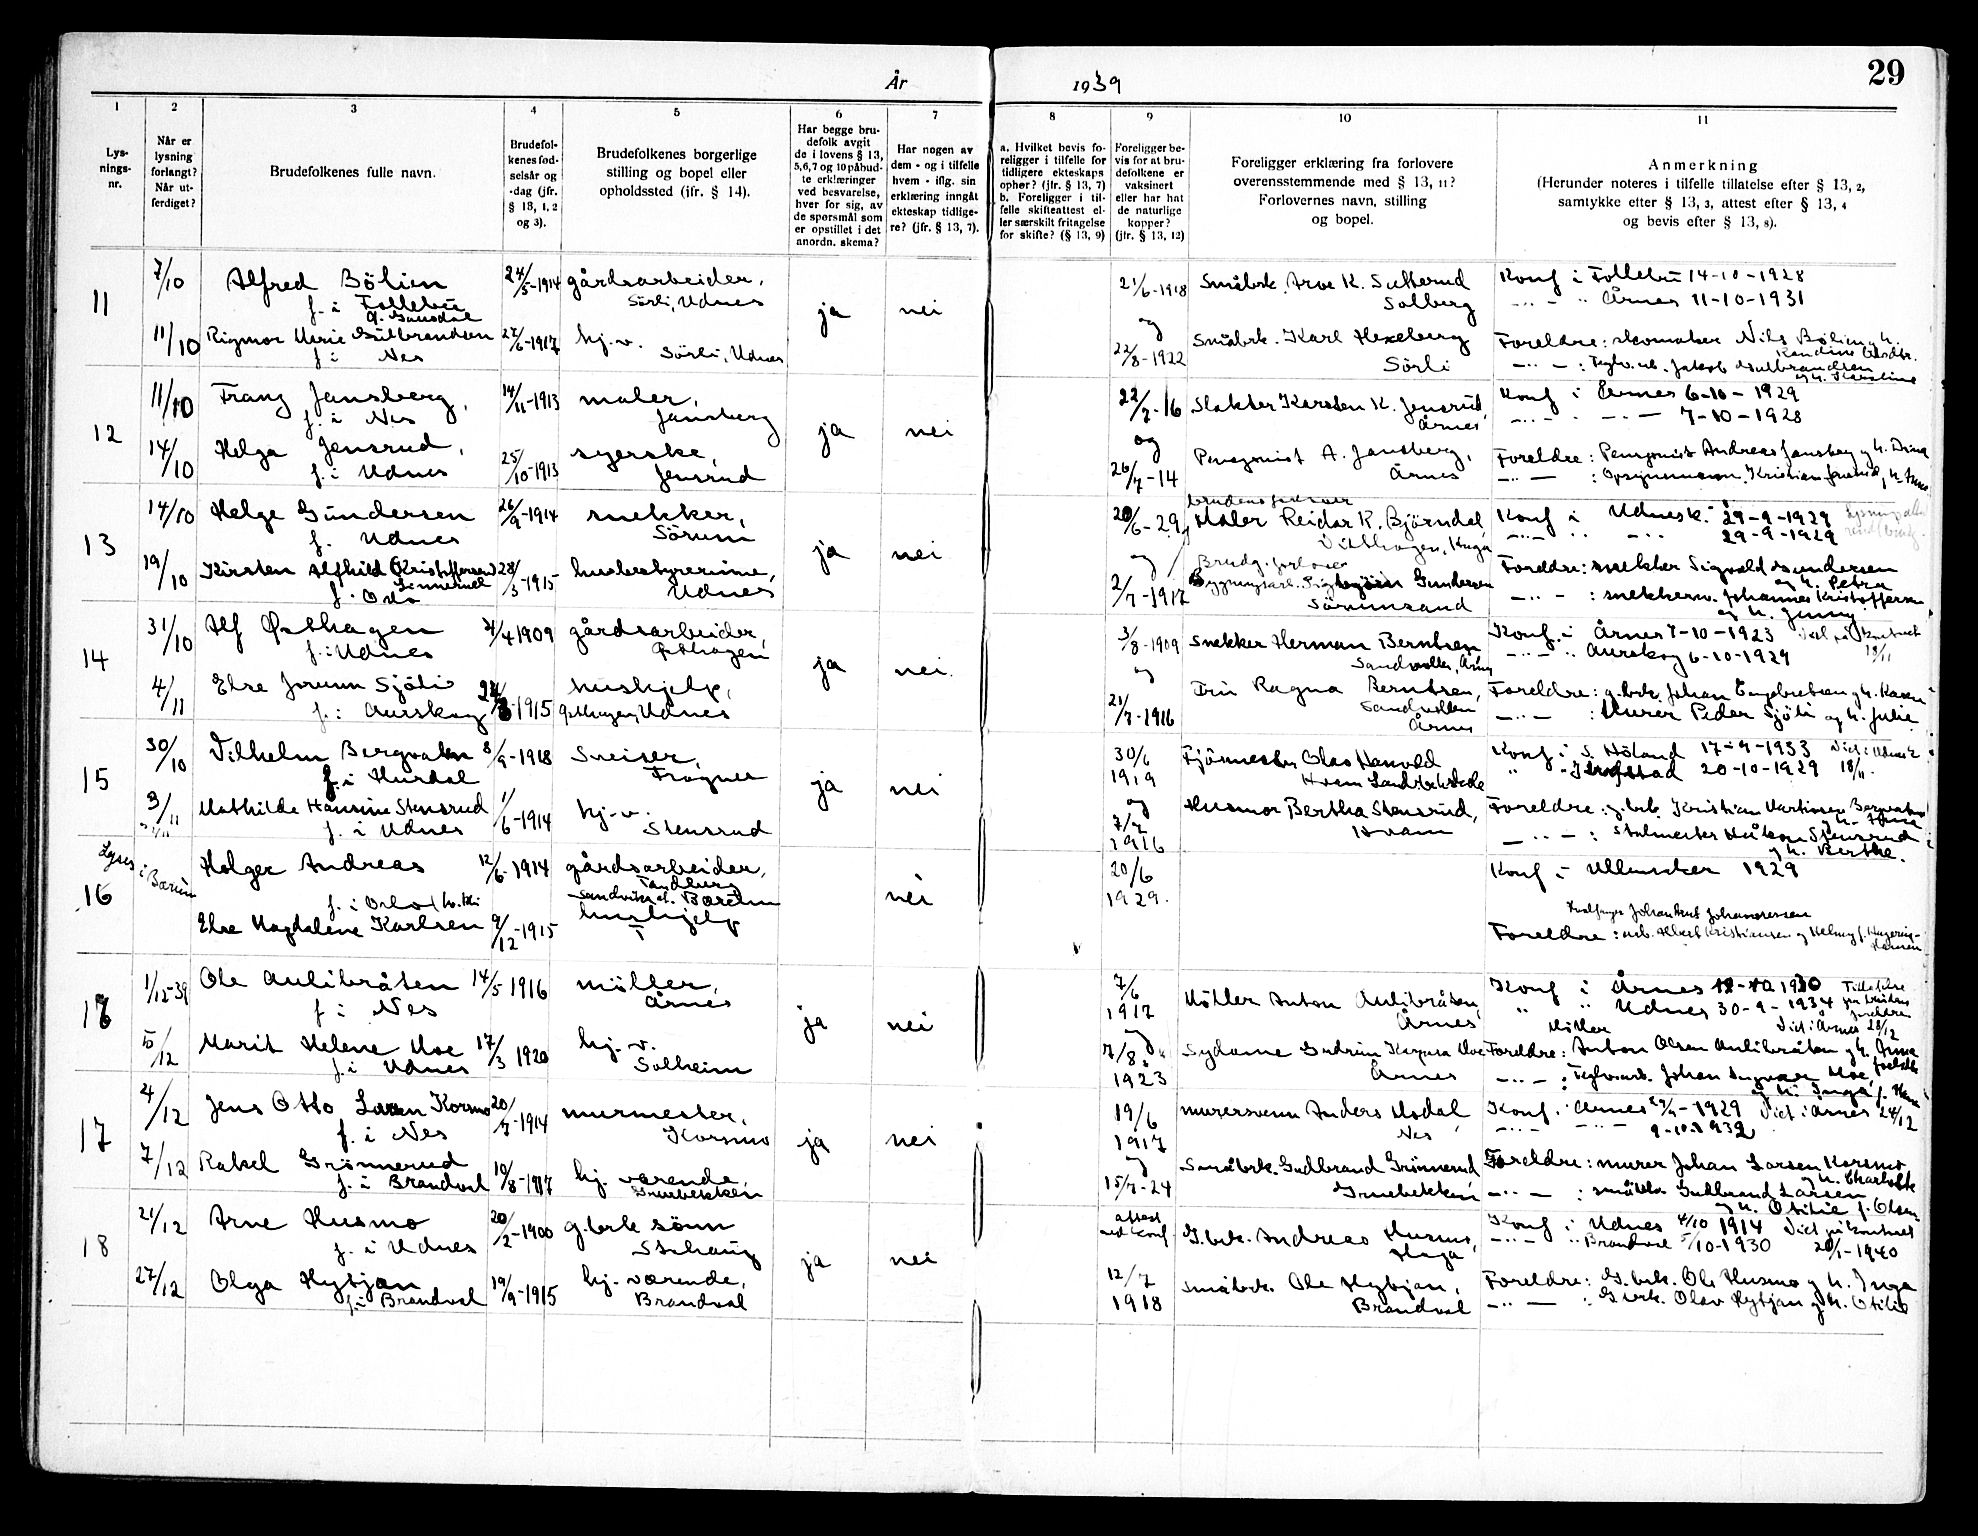 29
År 1939
1 2 3 4 5 6 7 8 9 10 11
Lys-
nings-
nr.
Når er
lysning
forlangt?
Når ut-
ferdiget?
Brudefolkenes fulle navn.
Brudefol-
kenes fød-
selsår og
-dag (jfr.
§ 13, 1, 2
og 3).
Brudefolkenes borgerlige
stilling og bopel eller
opholdssted (jfr. § 14).
Har begge bru-
defolk avgit
de i lovens § 13,
5,6,7 og 10 påbud-
te erklæringer
ved besvarelse,
hver for sig, av
de spørsmål som
er opstillet i det
anordn. skema?
Har nogen av
dem - og i tilfelle
hvem - iflg. sin
erklæring inngåt
ekteskap tidlige-
re? (jfr. § 13, 7).
a. Hvilket bevis fo-
religger i tilfelle for
tidligere ekteskaps
ophør? (jfr. § 13, 7)
b. Foreligger i til-
felle skifteattest el-
ler særskilt fritagelse
for skifte? (§ 13, 9)
Foreligger be-
vis for at bru-
defolkene er
vaksinert
eller har hat
de naturlige
kopper?
(jfr. § 13, 12)
Foreligger erklæring fra forlovere
overensstemmende med § 13, 11?
Forlovernes navn, stilling
og bopel.
Anmerkning
(Herunder noteres i tilfelle tillatelse efter § 13, 2,
samtykke efter § 13, 3, attest efter § 13, 4
og bevis efter § 13, 8).
11
7/10 Alfred Bölien 24/5-1914 gårdsarbeider, 21/6-1918 Småbrk. Arve K. Sætterud Konf i Follebu 14-10-1928
f. i Follebu Sörli, Udnes ja nei Solberg -"- " Årnes 11-10-1931
G. Gausdal og
11/10 Rigmor Merie Gulbrandsen 27/6-1917 hj. v. 22/8-1922 Småbrk. Karl Hexeberg Foreldre: skomaker Nils Bølien og h.
f. i Nes Sörli, Udnes Sörli -"- : Teglv.arb. Jakob Gulbrandsen
og h. Karoline
12
11/10 Franz Jansberg, 14/11-1913 maler, 22/7-16 Slakter Karsten K. Jensrud, Konf i Årnes 6-10-1929
f. i Nes Jansberg ja nei Årnes -"- 7-10-1928
og
14/10 Helga Jensrud, 25/10-1913 syerske, 26/7-14 Pensjonist A. Jansberg, Foreldre: Pensjonist Andreas Jansberg og h.
f. i Udnes Jensrud Årnes -"- : Opsynsmann Kristian Jensrud,
13
14/10 Helge Gundersen 26/9-1914 snekker, 20/6-29 brudens forlover
f. Udnes Sörum ja nei Maler Reidar K. Björndal, Konf i Udnes k. 29-9-1929
29-9-1929
og Brudg. forlover
19/10 Kirsten Alfhild (Kristoffersen) 28/3-1915 husbestyrerinne, 2/7-1917 Gundersen Foreldre: snekker Sigvald Gundersen
Linnerud Udnes Sörumsand og h. Petra
f. Oslo -"- : snekkerm. Johannes Kristoffersen
og h. Jenny
14
31/10 Alf Østhagen 4/4 1909 gårdsarbeider, 3/8-1909 Snekker Herman Berntsen Konf. i Årnes 7-10-1923
f. i Udnes Østhagen ja nei. Sandvollen, Årnes -"- " Aurskog 6-10-1929 18/11
og
4/11 Else Jorunn Sjöli -1915 hushjelp, 21/7-1916 Fru Ragna Berntsen, Foreldre: g.brk. Johan Engebretsen og h. Karen
f. i Aurskog Østhagen, Udnes Sandvollen -"- : Murer Peder Sjöli og h. Julie
Årnes
15
30/10 Vilhelm Bergvatn 8/9-1918 Sveiser, 30/6 1919 Fjösmester Olav Hanvold Konf i S. Höland 17-9-1933
f. i Hurdal Fragner ja nei Hvam Landbr.skole " 20-10-1929 18/11.
og
3/11 Mathilde Hansine Stensrud 1/6-1914 hj. v. 7/7 1916 Husmor Bertha Stensrud, Foreldre: g.brk. Kristian Martinsen Bergvatn
f. i Udnes Stensrud Hvam -"- : Stalmester Håkon Stensrud
og h. Berthe.
16
Lyses i Bærum
Holger Andreas 12/6-1914 gårdsarbeider, 20/6 1929. Konf i Ullensaker 1929
Tandberg
f. i Oslo Sandvika st. Bærum nei
Else Magdalene Karlsen 9/12-1915 hushjelp
Foreldre: arb. Albert Kristiansen og
Hansen
17
1/12-39 Ole Aulibråten 14/5 1916 möller, 7/6 1917 Möller Anton Aulibråten, Konf i Årnes 12-10 1930 Tillatelse
f. i Nes Årnes ja nei Årnes " Udnes 30-9-1934 fra brudens foreldre
og Möller Viet i Årnes 28/12
5/12 Marit Helene Moe 17/3 1920 hj. v. 7/8 1923 Sydame Gudrun Moe Foreldre: Anton Olsen Aulibråten og h. Anna
f. i Udnes Solheim Årnes -"- : Teglv.arb. Johan Ingvar Moe,
og h. Inga f.
17
4/12 Jens Otto Larsen Korsmo 20/7-1914 murmester, 19/6 1917 murersvenn Anders Modal, Konf. i Årnes 29/9-1929 Viet i Årnes 24/12
f. i Nes Korsmo ja nei Nes 9-10-1932
og
7/12 Rakel Grönnerud 19/8-1917 hj. værende, 15/7-24 Småbrk. Gudbrand Grönnerud, Foreldre: murer Johan Larsen Korsmo
f. i Brandval Gruebekken Gruebekken og h. Charlotte
-"- : småbr. Gudbrand Larsen
og h. Otilie f. Olsen
18
21/12 Arne Husmo 20/2-1900 g.brk sönn attest ved konf G.brk. Andreas Husmo, Konf i Udnes 4/10 1914
f. i Udnes ja nei Haga -"- " Brandval 5/10-1930 20/1-1940
27/12 Olga Hytjan 19/9-1915 hj. værende, 12/7 1918 Småbrk. Ole Hytjan, Foreldre: G.brk. Ole Husmo og h. Inga
f. i Brandval Brandval Brandval -"- : G.brk. Olav Hytjan og h. Otilie